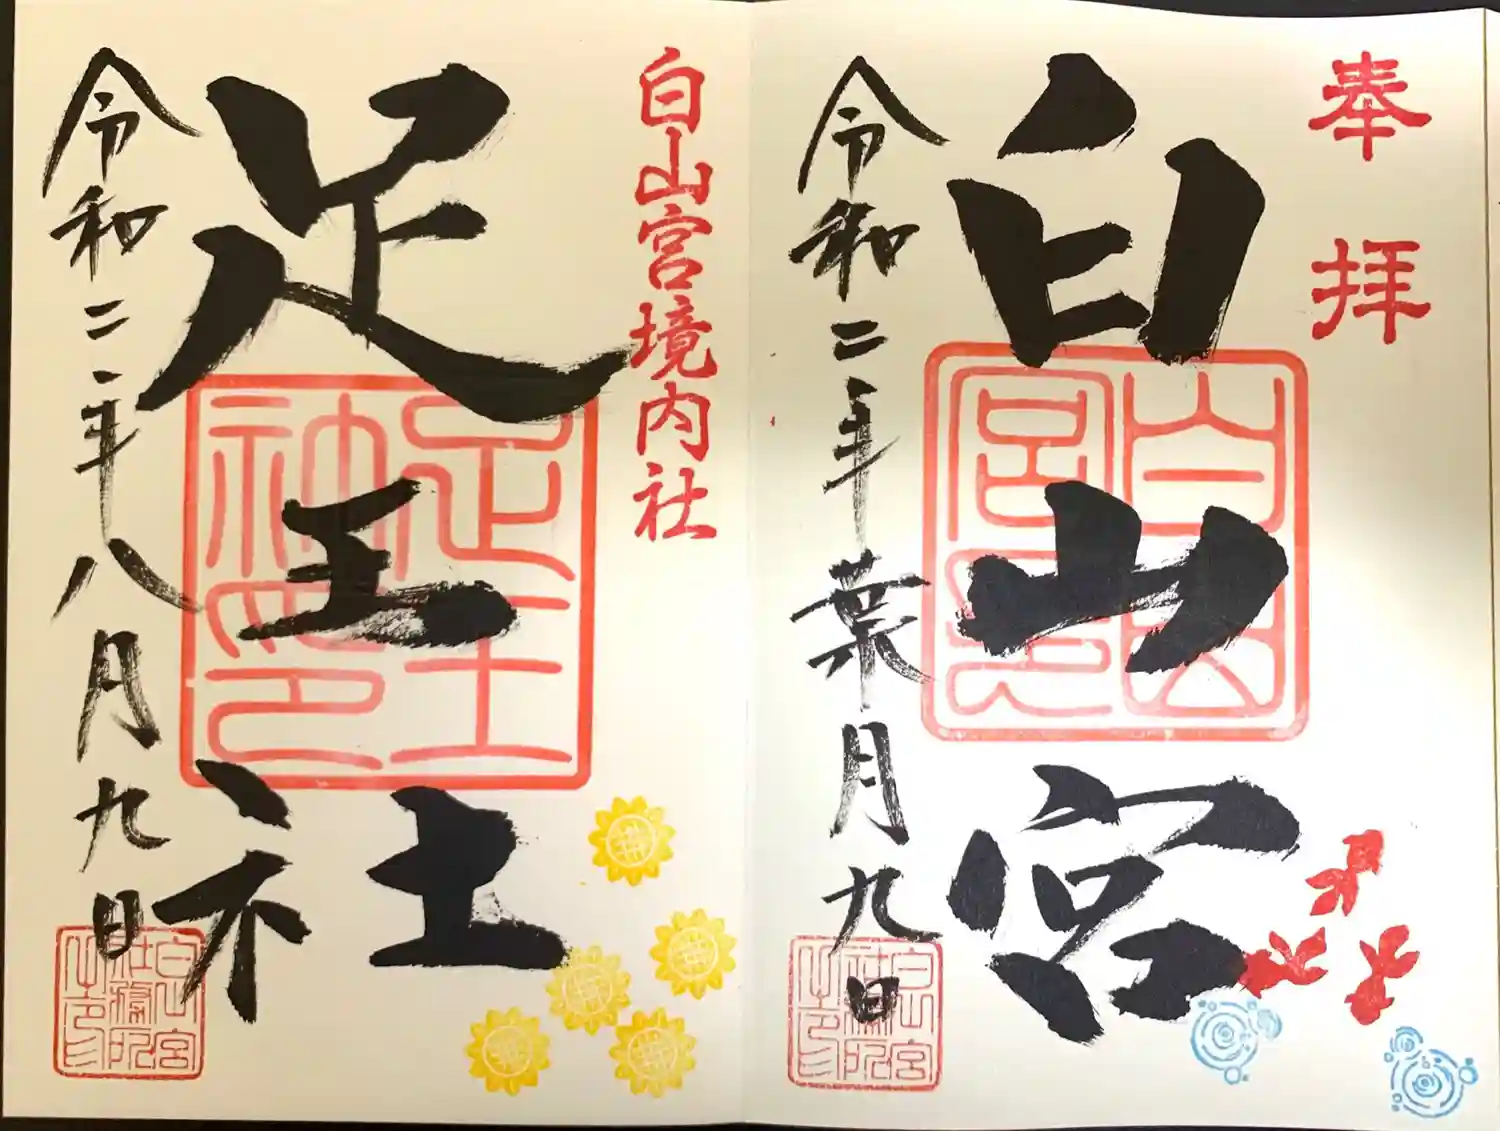 奉拝
白山宮
白山宮印
令和二年葉月九日
白山宮社務所之印
白山宮境内社
足王社
足王神印
令和二年八月九日
白山宮社務所之印